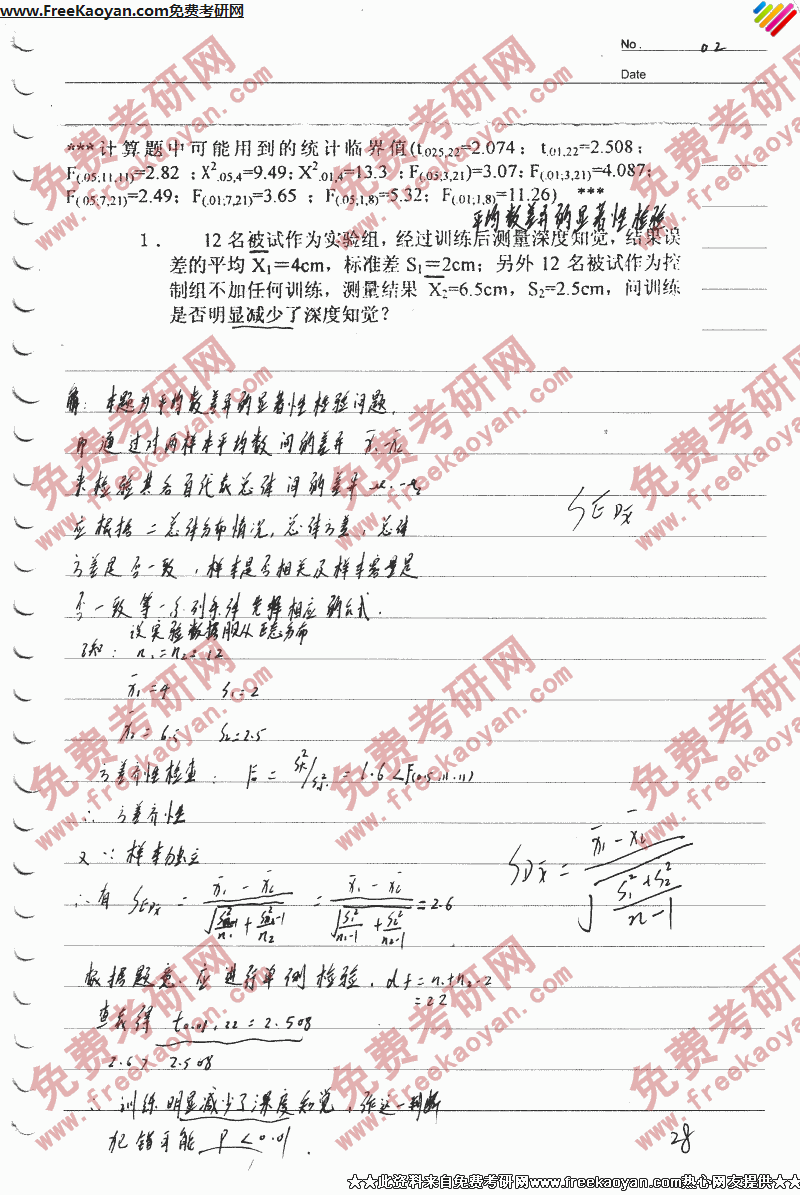 www.FreeKaoyan.com免费考研网
No. 02
Date
***计算题中可能用到的统计临界值(t.025,22=2.074; t.01,22=2.508;
F(.05,11,11)=2.82 ;X2.05,4=9.49; X2.01,4=13.3 ;F(.05;3,21)=3.07; F(.01;3,21)=4.087;
F(.05;7,21)=2.49; F(.01;7,21)=3.65 ; F(.05;1,8)=5.32; F(.01;1,8)=11.26) ***
平均数差异的显著性检验
1. 12名被试作为实验组,经过训练后测量深度知觉,结果误
差的平均 X1=4cm,标准差 S1=2cm;另外 12 名被试作为控
制组不加任何训练,测量结果 X2=6.5cm,S2=2.5cm,问训练
是否明显减少了深度知觉?
解:本题为平均数差异的显著性检验问题,
即通过对两样本平均数间的差异 x̄1-x̄2
来检验其各自代表总体间的差异
SEDx̄
应根据二总体分布情况,总体方差,总体
方差是否一致,样本是否相关及样本容量是
否一致等一系列条件选择相应的公式.
设实验数据服从正态分布
已知: n1=n2=12
x̄1=4 S1=2
x̄2=6.5 S2=2.5
方差齐性检查: =1.6<F(0.05,11,11)
∴方差齐性
又∵样本独立
SDx̄ = x̄1-x̄2 / √(S1²+S2² / n-1)
∴有 SEDx̄ = = x̄1-x̄2 / √(S1²/n1-1 + S2²/n2-1) =2.6
根据题意,应进行单侧检验, df=n1+n2-2
=22
查表得 t0.01,22=2.508
2.6> 2.508
∴训练明显减少了深度知觉,作这一判断
犯错可能 P<0.01.
28
★★此资料来自免费考研网www.freekaoyan.com热心网友提供★★